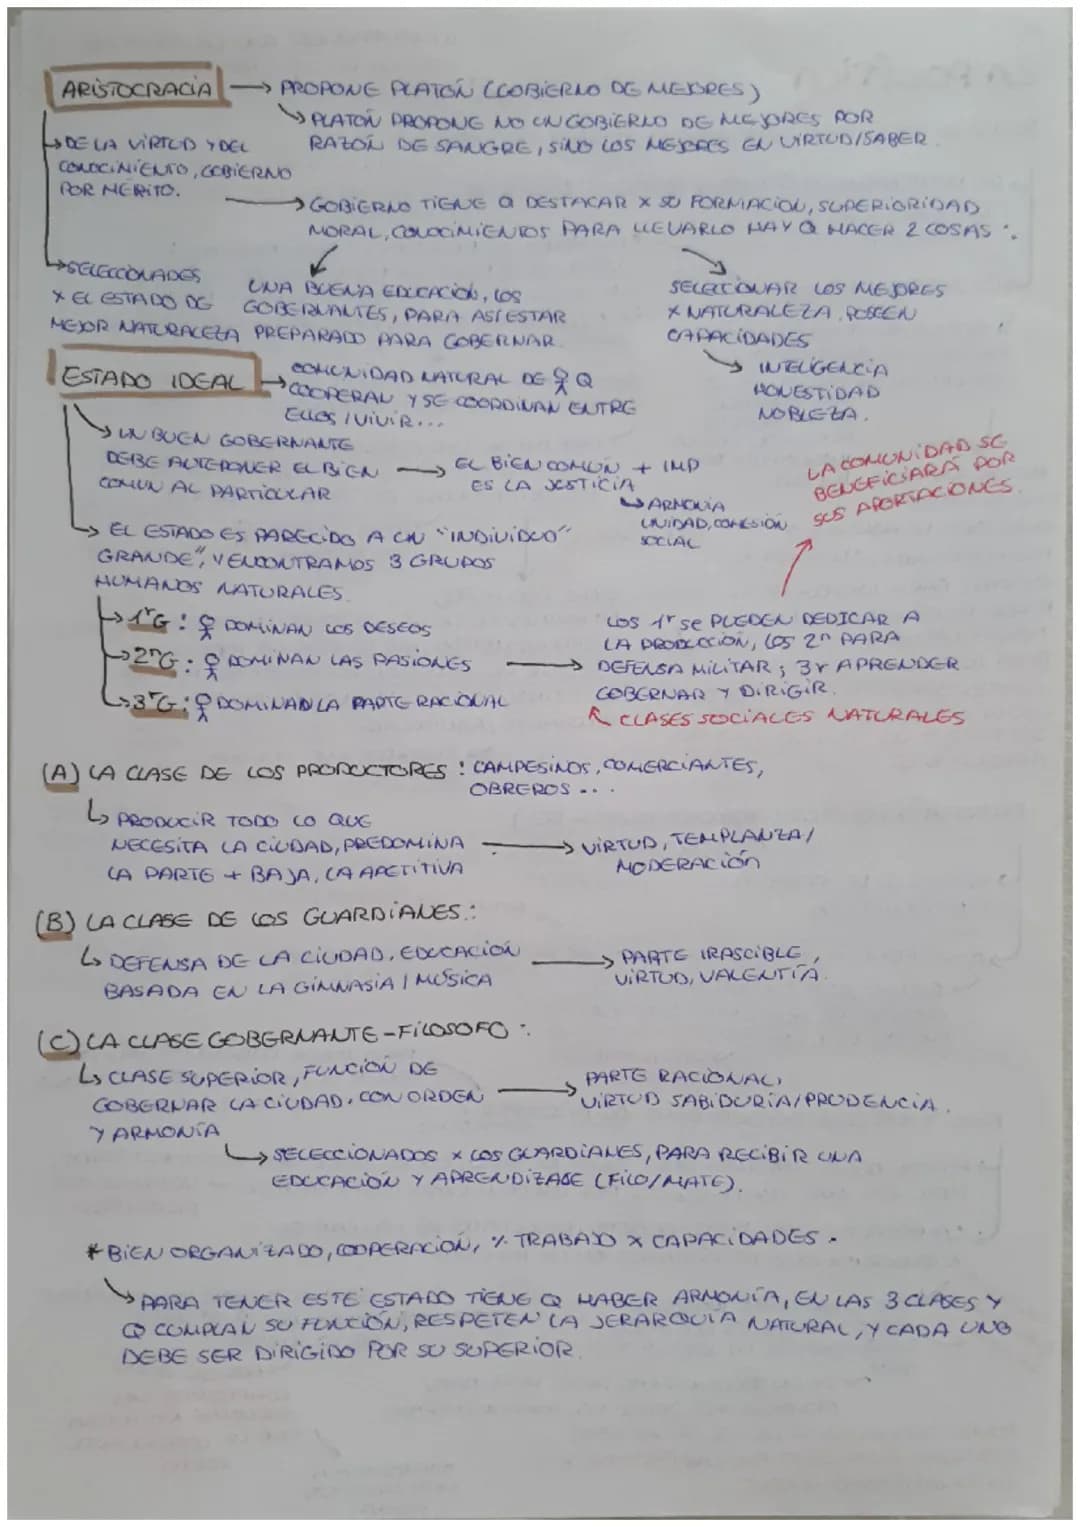 ARISTOCRACIA → PROPONE PLATÓN (GOBIERNO DE MEJORES)
↳ PLATÓN PROPONE NO UN GOBIERNO DE MEJORES POR
RAZÓN DE SANGRE, SINO LOS MEJORES EN VIRTUD/SABER.
→ DE LA VIRTUD Y DEL
CONOCIMIENTO, GOBIERNO
POR MÉRITO.
→ GOBIERNO TIENE Q DESTACAR X SU FORMACIÓN, SUPERIORIDAD
MORAL, CONOCIMIENTOS PARA LLEVARLO HAY Q HACER 2 COSAS:
→ SELECCIONADES
X EL ESTADO DE
MEJOR NATURALEZA
UNA BUENA EDUCACIÓN, LOS
GOBERNANTES, PARA ASÍ ESTAR
PREPARADO PARA GOBERNAR.
SELECCIONAR LOS MEJORES
X NATURALEZA, POSEEN
CAPACIDADES
→ INTELIGENCIA
HONESTIDAD
NOBLEZA.
ESTADO IDEAL → COMUNIDAD NATURAL DE Q
COOPERAN Y SE COORDINAN ENTRE
ELLOS / VIVIR...
↳ UN BUEN GOBERNANTE
DEBE ANTEPONER EL BIEN
COMÚN AL PARTICULAR
→ EL BIEN COMÚN + IMP
ES LA JUSTICIA
↳ ARMONÍA
UNIDAD, COHESIÓN
SOCIAL
LA COMUNIDAD SE
BENEFICIARÁ POR
SUS APORTACIONES.
→ EL ESTADO ES PARECIDO A UN "INDIVIDUO
GRANDE", Y ENCONTRAMOS 3 GRUPOS
HUMANOS NATURALES.
→ 1ʳG: DOMINAN LOS DESEOS
→ 2ⁿG: DOMINAN LAS PASIONES
→ 3ʳG: DOMINAN LA PARTE RACIONAL
LOS 1ʳ SE PUEDEN DEDICAR A
LA PRODUCCIÓN, LOS 2ⁿ PARA
→ DEFENSA MILITAR; 3r APRENDER
GOBERNAR Y DIRIGIR.
CLASES SOCIALES NATURALES
(A) LA CLASE DE LOS PRODUCTORES: CAMPESINOS, COMERCIANTES,
OBREROS...
↳ PRODUCIR TODO LO QUE
NECESITA LA CIUDAD, PREDOMINA
LA PARTE + BAJA, LA APETITIVA
→ VIRTUD, TEMPLANZA/
MODERACIÓN
(B) LA CLASE DE LOS GUARDIANES:
↳ DEFENSA DE LA CIUDAD, EDUCACIÓN
BASADA EN LA GIMNASIA / MÚSICA
→ PARTE IRASCIBLE,
VIRTUD, VALENTÍA.
(C) LA CLASE GOBERNANTE-FILOSOFO:
↳ CLASE SUPERIOR, FUNCIÓN DE
GOBERNAR LA CIUDAD, CON ORDEN
Y ARMONÍA
→ PARTE RACIONAL,
VIRTUD SABIDURÍA/PRUDENCIA.
→ SELECCIONADOS X LOS GUARDIANES, PARA RECIBIR UNA
EDUCACIÓN Y APRENDIZAJE (FILO/MATE).
* BIEN ORGANIZADO, COOPERACIÓN, % TRABAJO X CAPACIDADES.
↳ PARA TENER ESTE ESTADO TIENE Q HABER ARMONÍA, EN LAS 3 CLASES Y
Q CUMPLAN SU FUNCIÓN, RESPETEN LA JERARQUÍA NATURAL, Y CADA UNO
DEBE SER DIRIGIDO POR SU SUPERIOR.